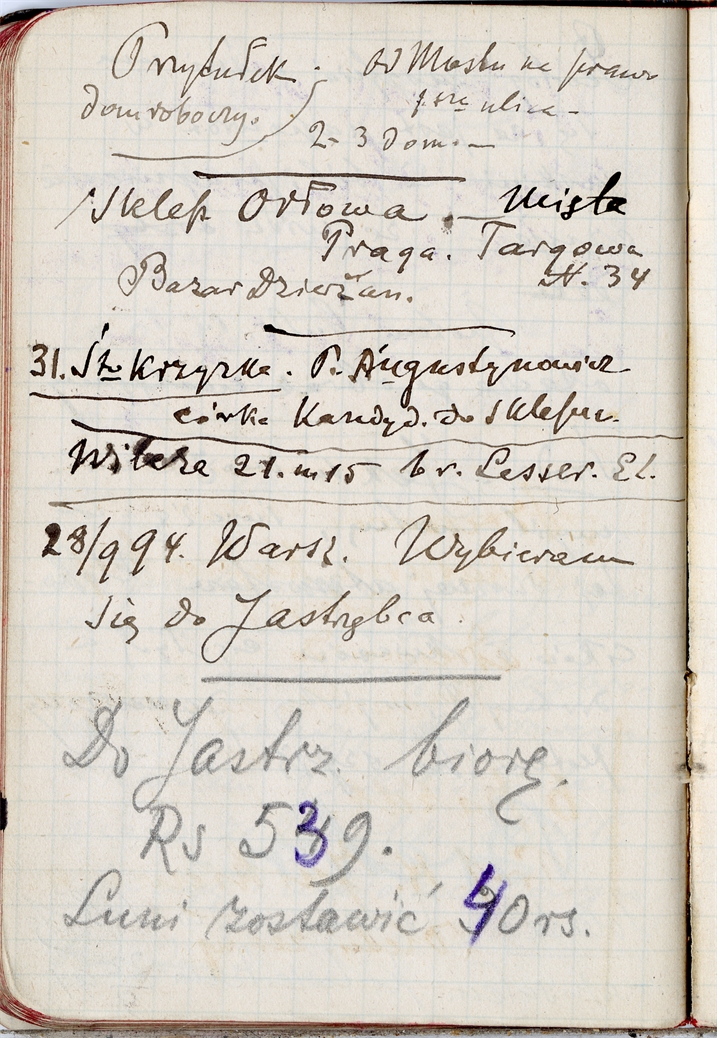 Przytułek od Mostu na prawo
dom roboczy. 1sza ulica -
2-3 dom. -
Sklep Orłowa. -
Praga. Targowa
Bazar N. 34
31. Śto Krzyzka. P. Augustynowicz
córka Kandyd. do Sklepu.
Wilcza 21. m 15 br. Lesser. El.
28/9 94. Warsz. Wybieram
się do Jastrzębca.
Do Jastrz. biorę.
Rs 539.
Luni zostawić 40 rs.